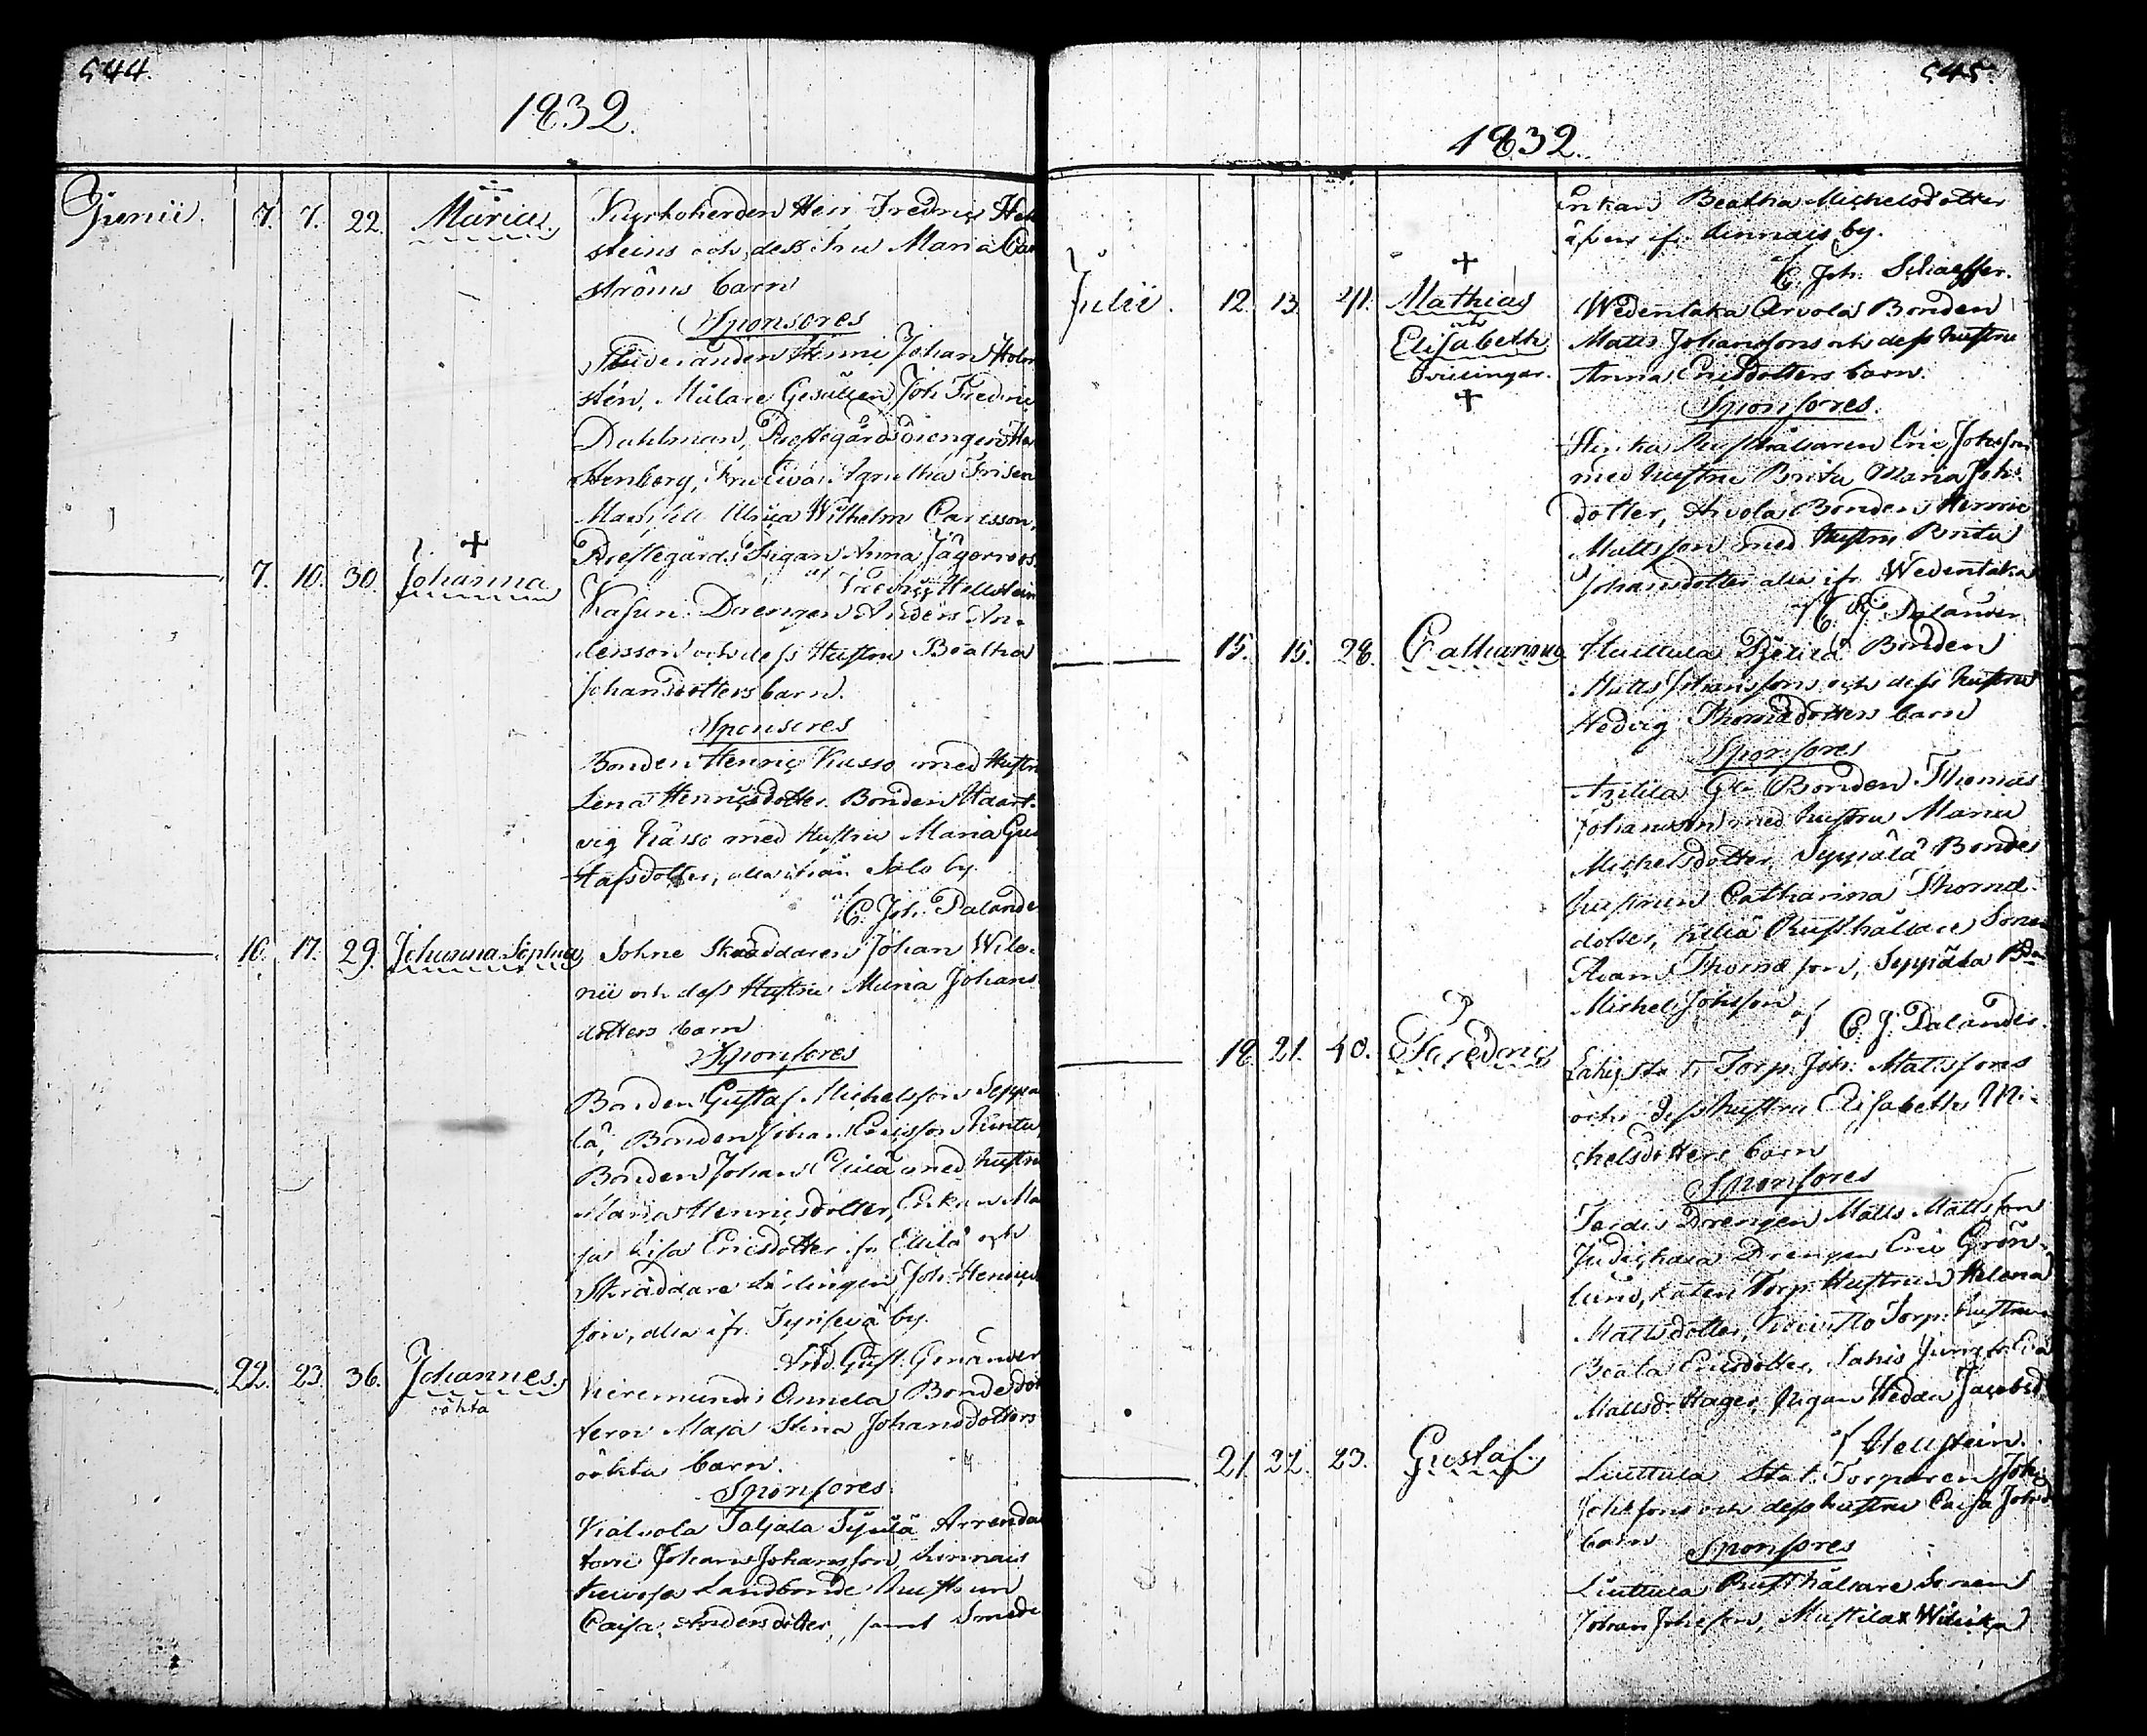 544.
1832.
Junii. 7. 7. 22. Maria.
Kyrkoherden Herr Fredric Hell
steins och dess Fru Maria Cas
ströms barn
Sponsores
Studeranden Henric Johan Holm
stén, Målare Gesällen Joh Fredric
Dahlman, Prestegårdsdrengen
Stenberg, Fru Eva Agnetha Frisen
Mamsell Ulrica Wilhelm Carlsson,
Prestegårds Pigan Anna Jägerroos.
af Fredric Hellstein
7. 10. 30. Johanna
Kasuri Drengen Anders An-
dersson och dess Hustru Beatha
Johansdotters barn.
Sponsores
Bonden Henric Kusso med Hustru
Lena Henricsdotter. Bonden Haart-
vig Kässö med Hustru Maria Gus
tafsdotter, alla ifrån Salo by.
af C. Joh. Palande
16. 17. 29. Johanna Sophia
Sohne Skräddaren Johan Wile-
nii och dess Hustru Maria Johans
dotters barn
Sponsores
Bonden Gustaf Michelsson Seppä
lä, Bonden Johan Ericsson
Bonden Johan Elilä med Hustru
Maria Henricsdotter, Enkan Ma
ja Lisa Ericsdotter ifr. Ellilä och
Skräddare Lärlingen Joh. Henrics
son, alla ifr. by.
And. Gust. Granander
22. 23. 36. Johannes.
oäkta
Kieremundi Onnela Bondedot
tern Maja Stina Johansdotters
oäkta barn.
Sponsores.
Kalvola Taljala Arrenda
torn Johan Johansson, Linnais
Landbonde Hustrun
Caisa Andersdotter, samt Smeds
545.
1832.
enkan Beatha Michelsdotter
äfven ifr. Linnais by.
af C. Joh. Schaeffer.
Julii. 12. 13. 41. Mathias
och
Elisabeth
Tvillingar.
Wedentaka Arvola Bonden
Matts Johanssons och dess hustru
Anna Ericsdotters barn.
Sponsores.
Rusthållaren Eric Johsson
med hustru Brita Maria Johs
dotter, Arvola Bonden Henric
Mattsson med Hustru Brita
Johansdotter alla ifr. Wedentaka
af C. J. Palander
15. 15. 28. Catharina
Huittula Bonden
Matts Johanssons och dess hustru
Hedvig Thomædotters barn
Sponsores
Anttila Gle Bonden Thomas
Johansson med hustru Maria
Michelsdotter, Seppälä Bonde
hustrun Catharina Thomæ-
dotter, Rusthållare Sonen
Adam Thomæson, Seppälä Bden
Michel Johsson
af C. J. Palander.
18. 21. 40. Fredric
Lahis St. T. Torp. Joh. Mattssons
och dess hustru Elisabeth Mi-
chelsdotters barn
Sponsores
Drengen Matts Mattsson
Drengen Eric Grön-
lund, Torp. Hustrun Helena
Mattsdotter, Torp. hustrun
Beata Ericsdotter, Lahis Jungfr. Eva
Mattsdr Hager, Pigan Hedda Jacobsd.
af Hellstein.
21. 22. 23. Gustaf.
Liuttula Stat. Torparen Joh.
Johssons och dess hustru Caisa Johsd
barn Sponsores
Liuttula Rusthållare Sonen
Johan Johsson, Mustila